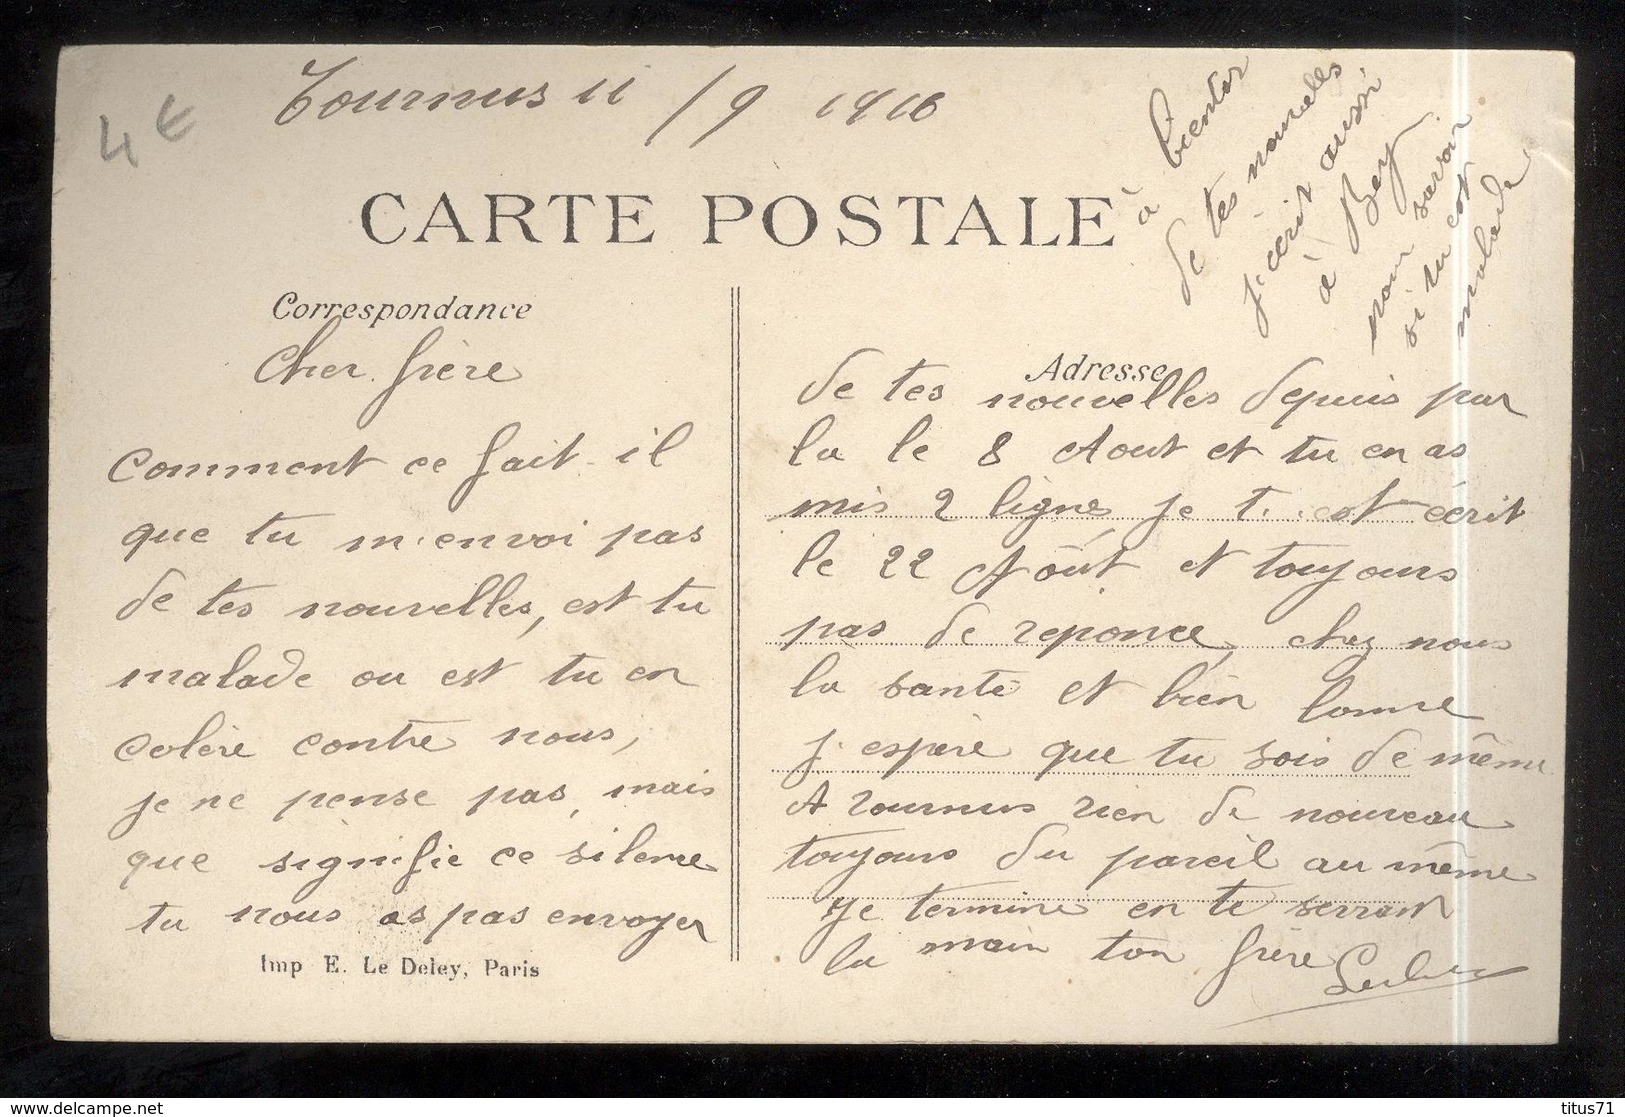 4 €
Tournus 11 / 9 1916
à bientot
de tes nouvelles
j'ecrit aussi
à Bey
pour savoir
si tu est
malade
CARTE POSTALE
Correspondance
Cher frère
Comment ce fait-il
que tu m'envoi pas
de tes nouvelles, est tu
malade ou est tu en
colère contre nous,
je ne pense pas, mais
que signifie ce silence
tu nous as pas envoyer
Imp E. Le Deley, Paris
Adresse
de tes nouvelles depuis par
la le 8 Aout et tu en as
mis 2 lignes, je t'est écrit
le 22 Aôut et toujours
pas de reponce, chez nous
la santé et bien bonne
j'espère que tu sois de même
A Tournus rien de nouveau
toujours du pareil au même
Je termine en te serrant
la main ton frère
titus71